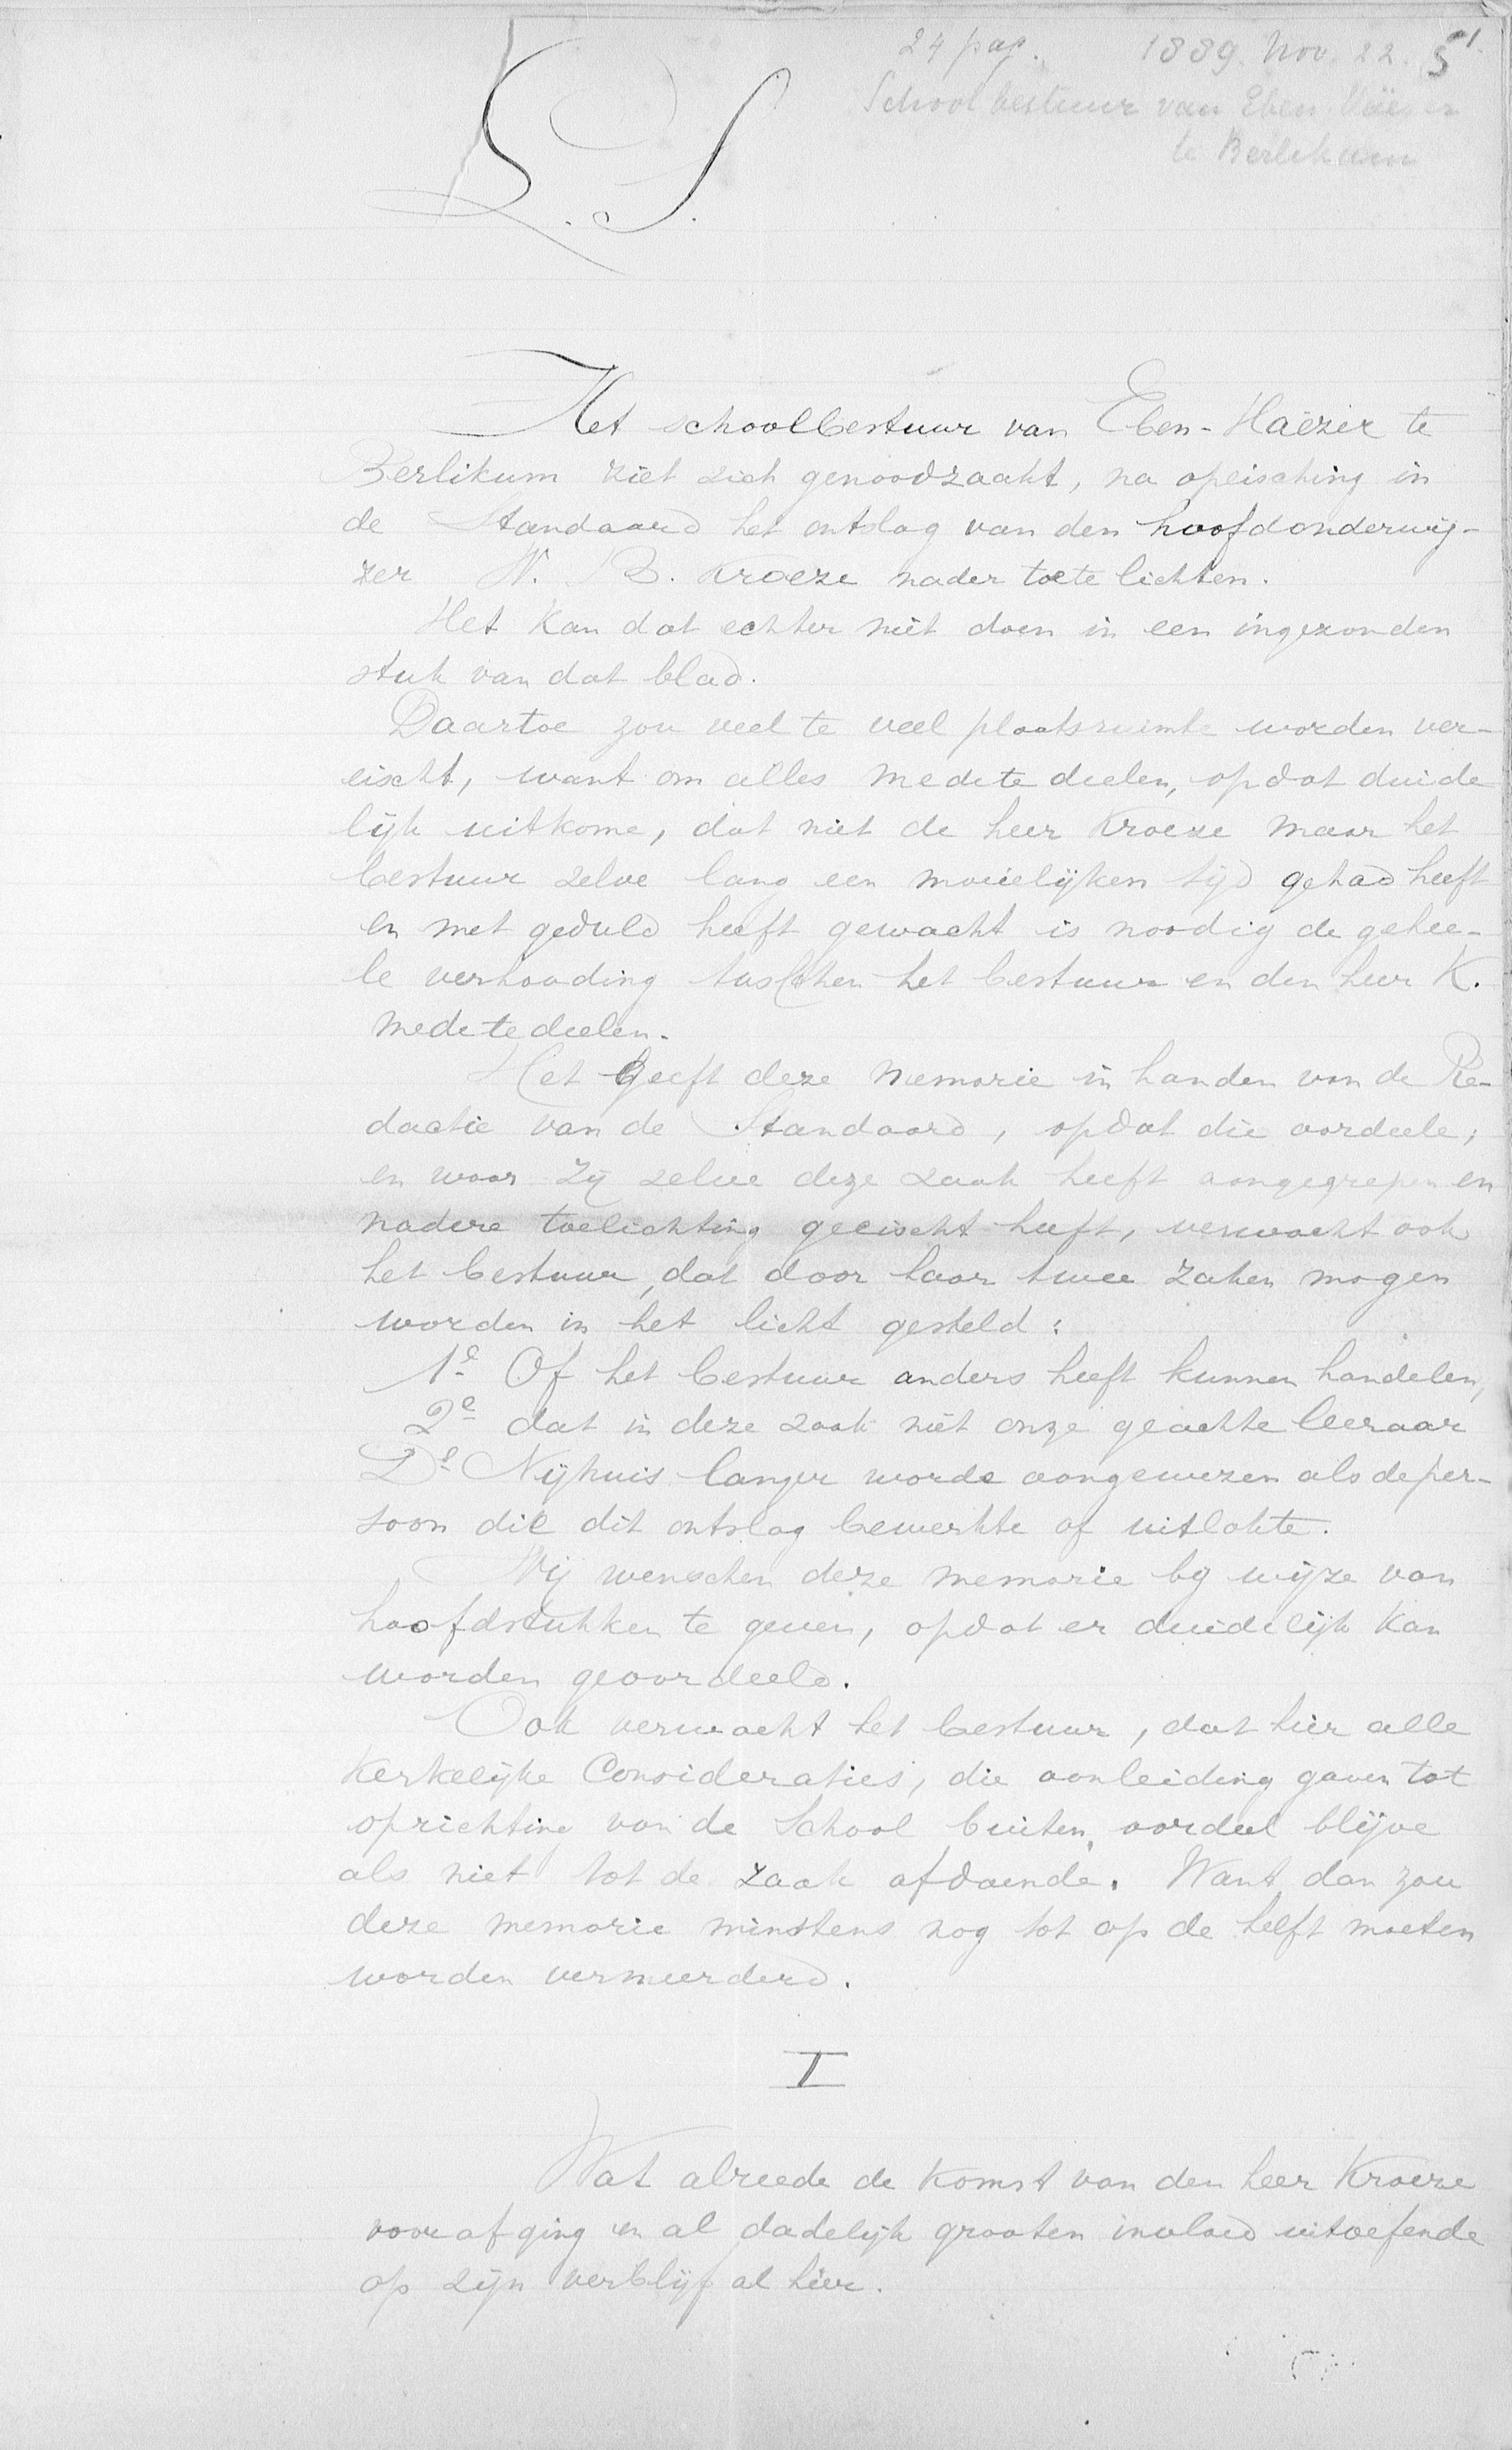 24 pag. 1889. Nov. 22. 51.
Schoolbestuur van Eben Häezer
te Berlikum
L. S.
Het schoolbestuur van Eben-Häezer te
Berlikum ziet zich genoodzaakt, na opeisching in
de Standaard het ontslag van den hoofdonderwij-
zer W. B. Kroeze nader toe te lichten.
Het kan dat echter niet doen in een ingezonden
stuk van dat blad.
Daartoe zou veel te veel plaatsruimte worden ver-
eischt, want om alles mede te deelen, opdat duide
lijk uitkome, dat niet de heer Kroeze maar het
bestuur zelve lang een moeielijken tijd gehad heeft
en met geduld heeft gewacht is noodig de gehee-
le verhouding tusschen het bestuur en den heer K.
mede te deelen.
Het geeft deze memorie in handen van de Re-
dactie van de Standaard, opdat die oordeele,
en waar zij zelve deze zaak heeft aangegrepen en
nadere toelichting geeischt heeft, verwacht ook
het bestuur, dat door haar twee zaken mogen
worden in het licht gesteld:
1e Of het bestuur anders heeft kunnen handelen,
2e dat in deze zaak niet onze geachte leeraar
Ds Nijhuis langer worde aangewezen als de per-
soon die dit ontslag bewerkte of uitlokte.
Wij wenschen deze memorie bij wijze van
hoofdstukken te geven, opdat er duidelijk kan
worden geoordeeld.
Ook verwacht het bestuur, dat hier alle
Kerkelijke Consideraties, die aanleiding gaven tot
oprichting van de School buiten oordeel blijve
als niet tot de zaak afdoende. Want dan zou
deze memorie minstens nog tot op de helft moeten
worden vermeerderd.
I
Wat alreede de komst van den heer Kroeze
voorafging en al dadelijk grooten invloed uitoefende
op zijn verblijf al hier.